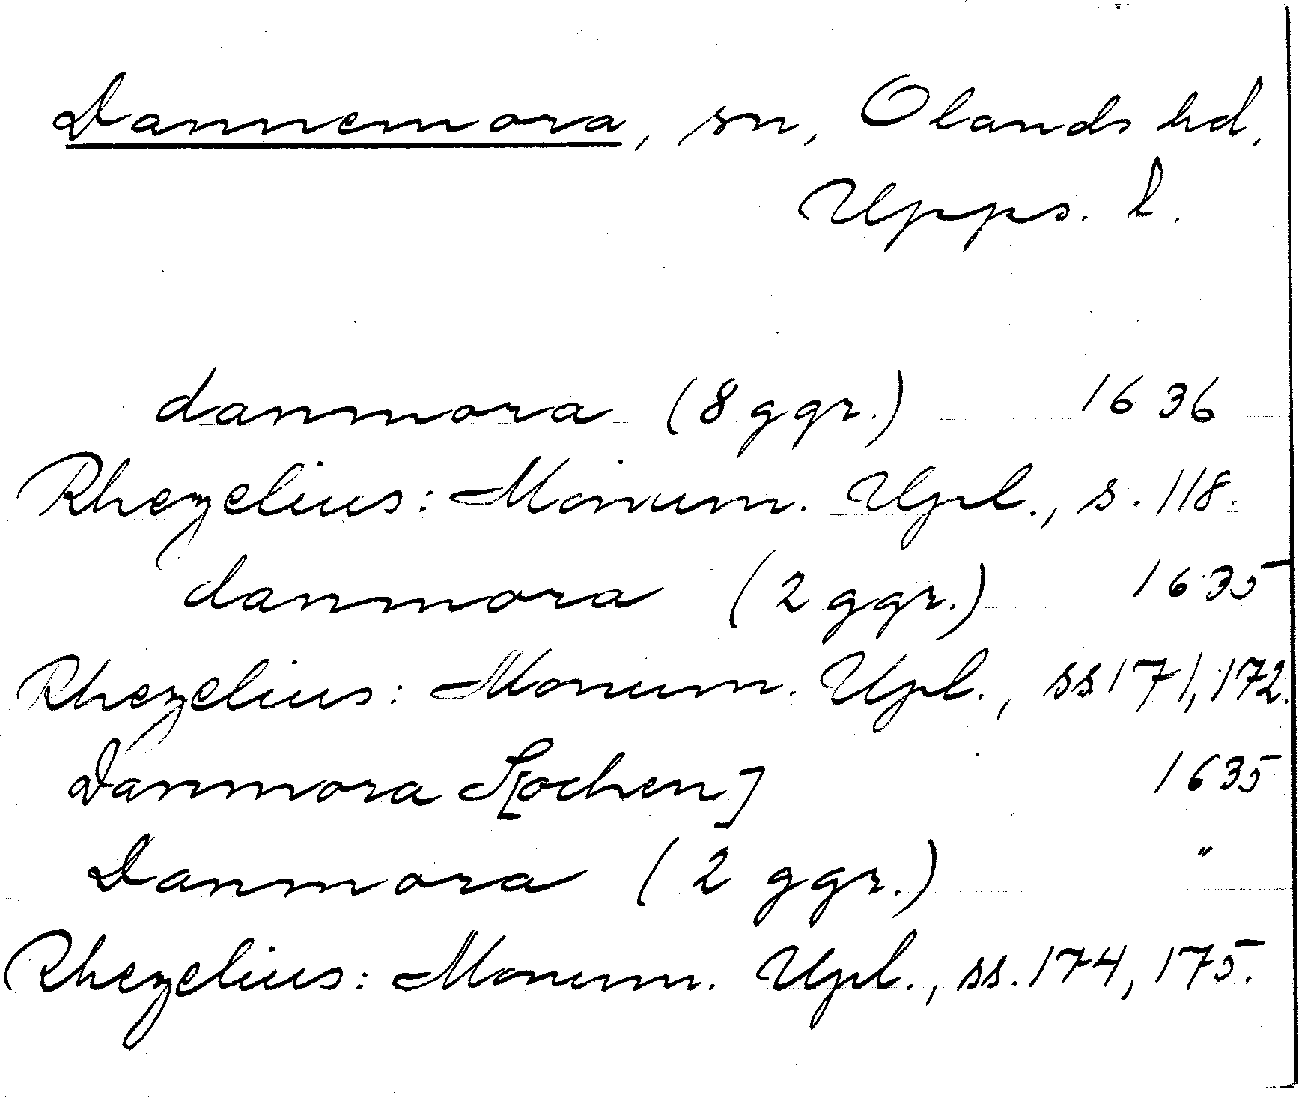 Dannemora, sn, Olands hd,
Upps. l.
danmora (8 ggr.) 1636
Rhezelius: Monum. Upl., s. 118.
danmora (2 ggr.) 1635
Rhezelius: Monum. Upl., ss 171, 172.
Danmora S[ochen] 1635
Danmora (2 ggr.) "
Rhezelius: Monum. Upl., ss. 174, 175.